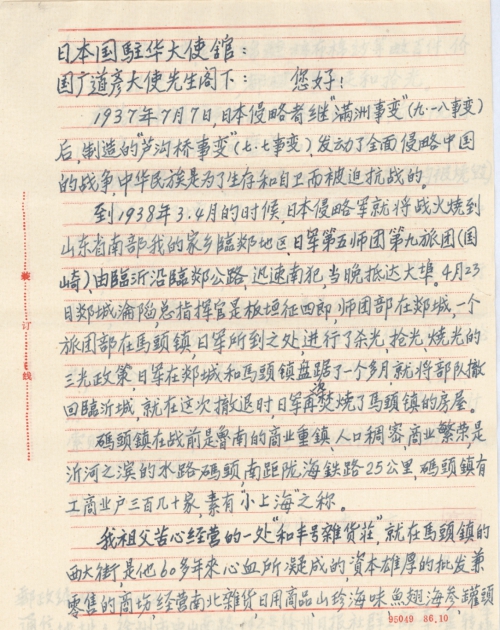 日本国駐华大使舘：
国广道彦大使先生阁下：　　您好！
1937年7月7日，日本侵略者继"满洲事变"（九·一八事变）
后，制造的"芦沟桥事变"（七·七事变），发动了全面侵略中国
的战争，中华民族是为了生存和自卫而被迫抗战的。
到1938年3.4月的时候，日本侵略軍就将战火燒到
山东省南部我的家乡臨郯地区，日軍第五师团第九旅团（国
崎），由臨沂沿臨郯公路，迅速南犯，当晚抵达大埠。4月23
日郯城淪陷，总指挥官是板垣征四郎，师团部在郯城，一个
旅团部在馬頭镇，日軍所到之处，進行了杀光，抢光，燒光的
三光政策，日軍在郯城和馬頭镇盘踞了一个多月，就将部队撤
回臨沂城，就在这次撤退时日軍再焚燒了馬頭镇的房屋。
碼頭镇在战前是魯南的商业重镇，人口稠密，商业繁荣是
沂河之濱的水路碼頭，南距陇海鉄路25公里，碼頭镇有
工商业户三百几十家，素有"小上海"之称。
我祖父苦心经营的一处"和丰号雜货荘"，就在馬頭镇的
西大街，是他60多年來心血所凝成的，資本雄厚的批发兼
零售的商坊，经营南北雜貨日用商品山珍海味，魚翅海参罐頭
装
订
线
95049　86.10